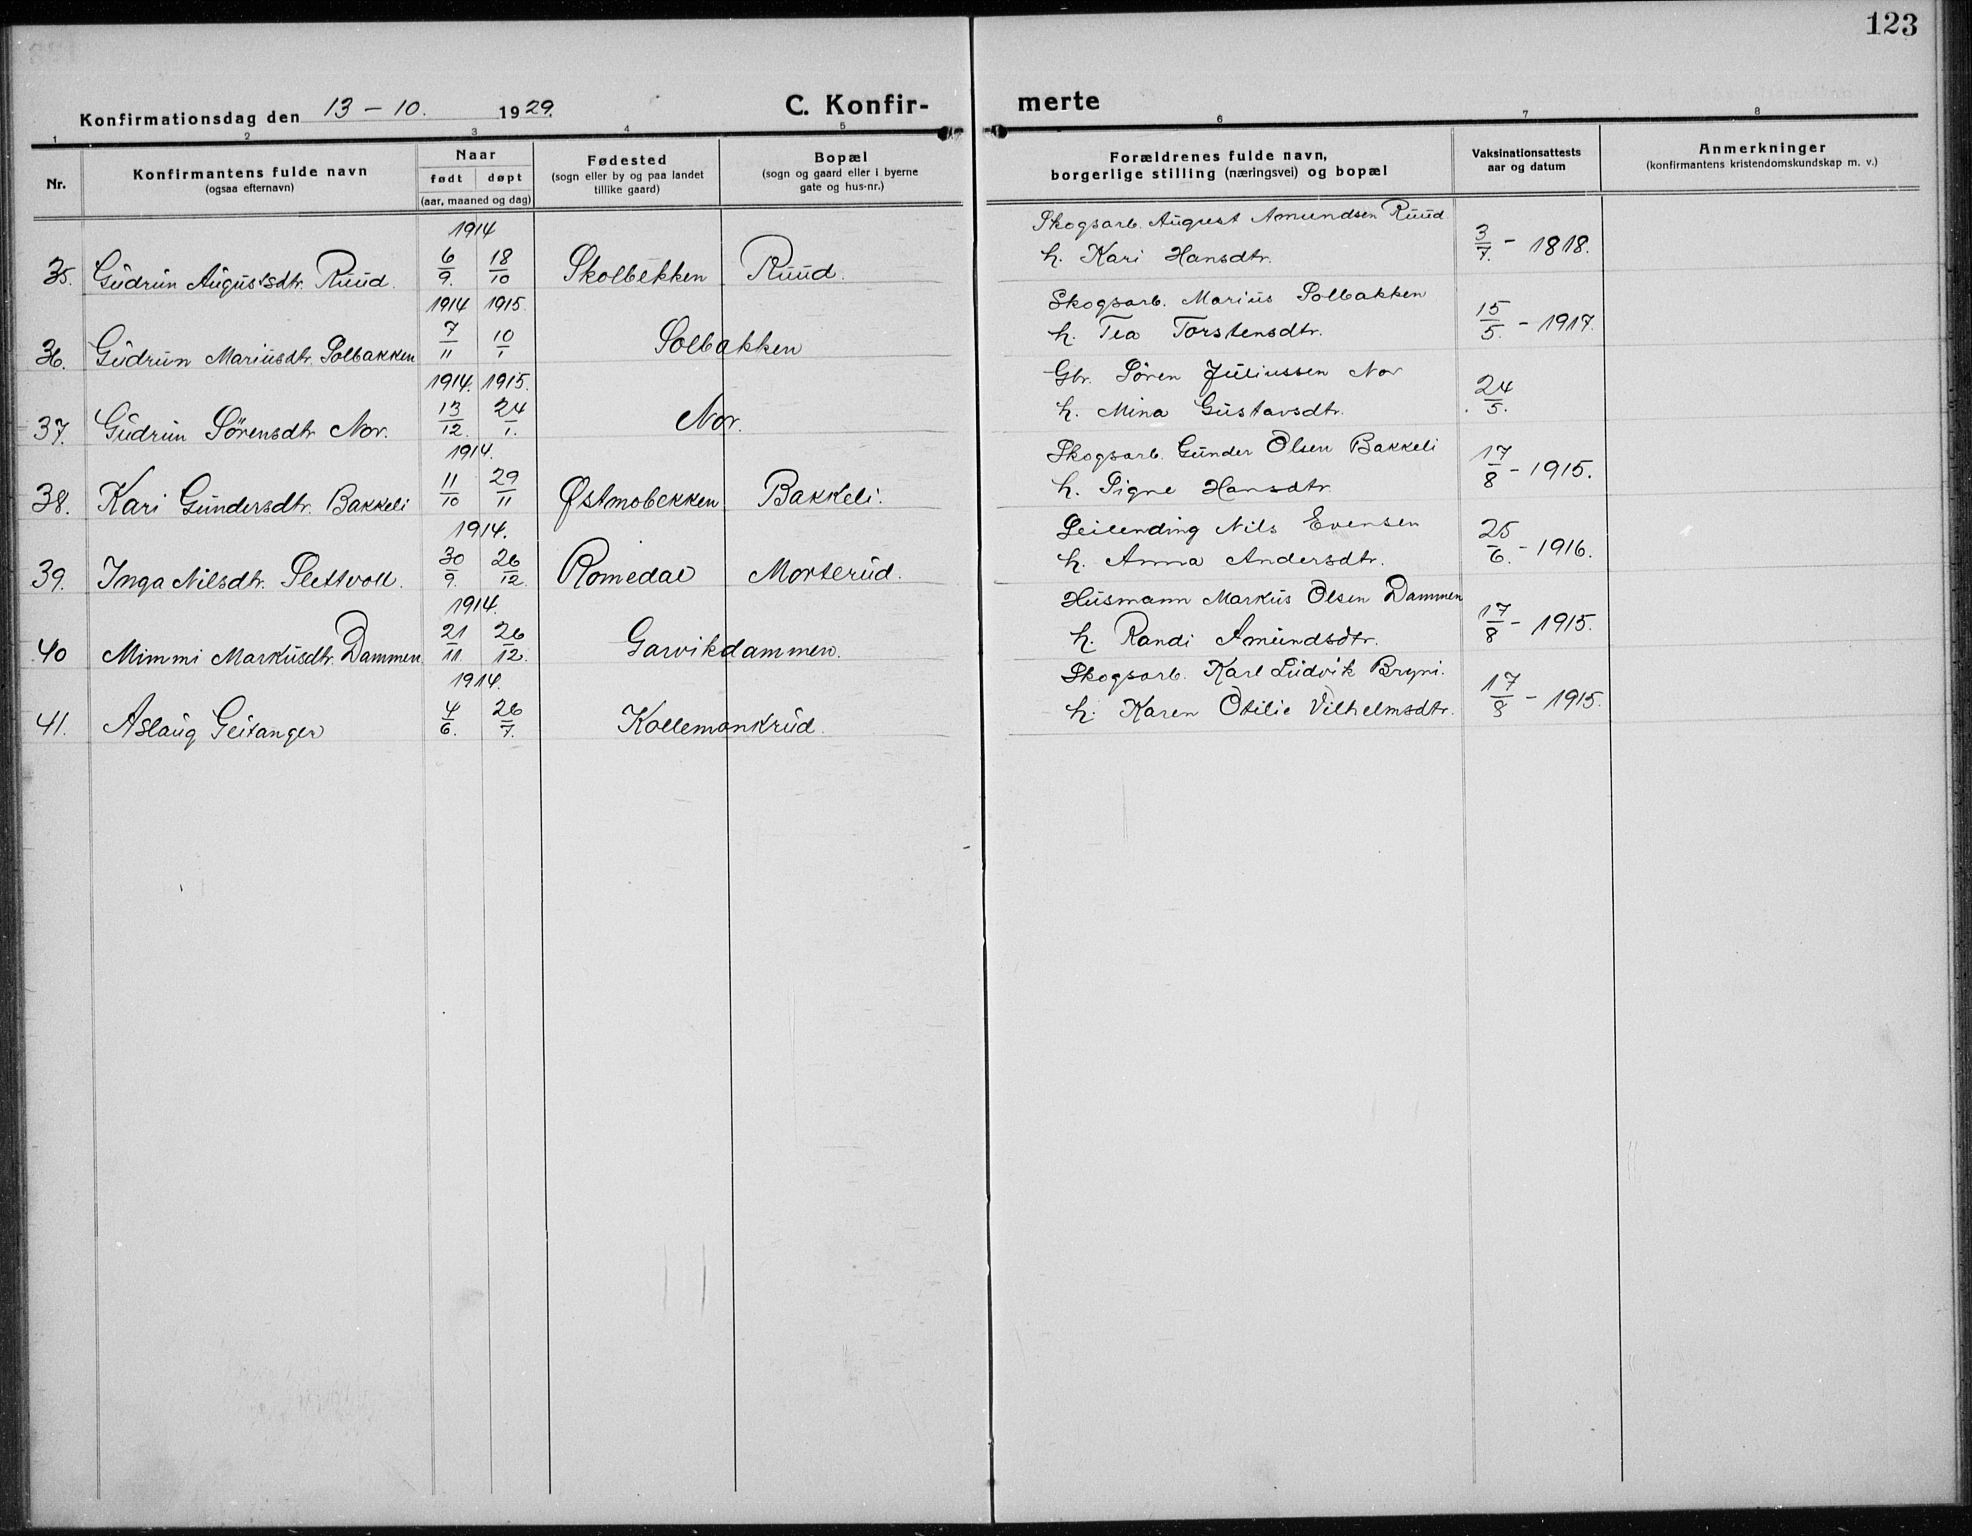 123
Konfirmationsdag den 13 – 10. 1929.
C. Konfir- merte
1 2 3 4 5 6 7 8
Nr.
Konfirmantens fulde navn
(ogsaa efternavn)
Naar
født døpt
(aar, maaned og dag)
Fødested
(sogn eller by og paa landet
tillike gaard)
Bopæl
(sogn og gaard eller i byerne
gate og hus-nr.)
Forældrenes fulde navn,
borgerlige stilling (næringsvei) og bopæl
Vaksinationsattests
aar og datum
Anmerkninger
(konfirmantens kristendomskundskap m. v.)
1914 Skogsarb. August Amundsen Ruud
35. Gudrun Augustsdtr. Ruud. 6/9. 18/10 Skolbekken Ruud. h. Kari Hansdtr. 3/7. – 1818.
1914 1915. Skogsarb. Marius Solbakken
36. Gudrun Mariusdtr. Solbakken 7/11 10/1 Solbakken h. Tea Torstensdtr. 15/5. – 1917.
1914. 1915. Gbr. Sören Juliussen Nor
37. Gudrun Sörensdtr Nor. 13/12. 24/1. Nor. h. Mina Gustavsdtr. 24/5.
1914. Skogsarb. Gunder Olsen Bakkeli
38. Kari Gundersdtr. Bakkeli 11/10 29/11 Østmobekken Bakkeli. h. Signe Hansdtr 17/8 – 1915.
1914. Leilending Nils Evensen
39. Inga Nilsdtr. Slettvoll. 30/9. 26/12. Romedal Morterud. h. Anna Andersdtr. 25/6. – 1916.
1914. Husmann Markus Olsen Dammen
40 Mimmi Markusdtr. Dammen. 21/11. 26/12. Garvikdammen. h. Randi Amundsdtr. 17/8 – 1915.
1914. Skogsarb. Karl Ludvik Bryni.
41. Aslaug Geitanger 4/6. 26/7. Kollemankrud. h. Karen Otilie Vilhelmsdtr. 17/8 – 1915.